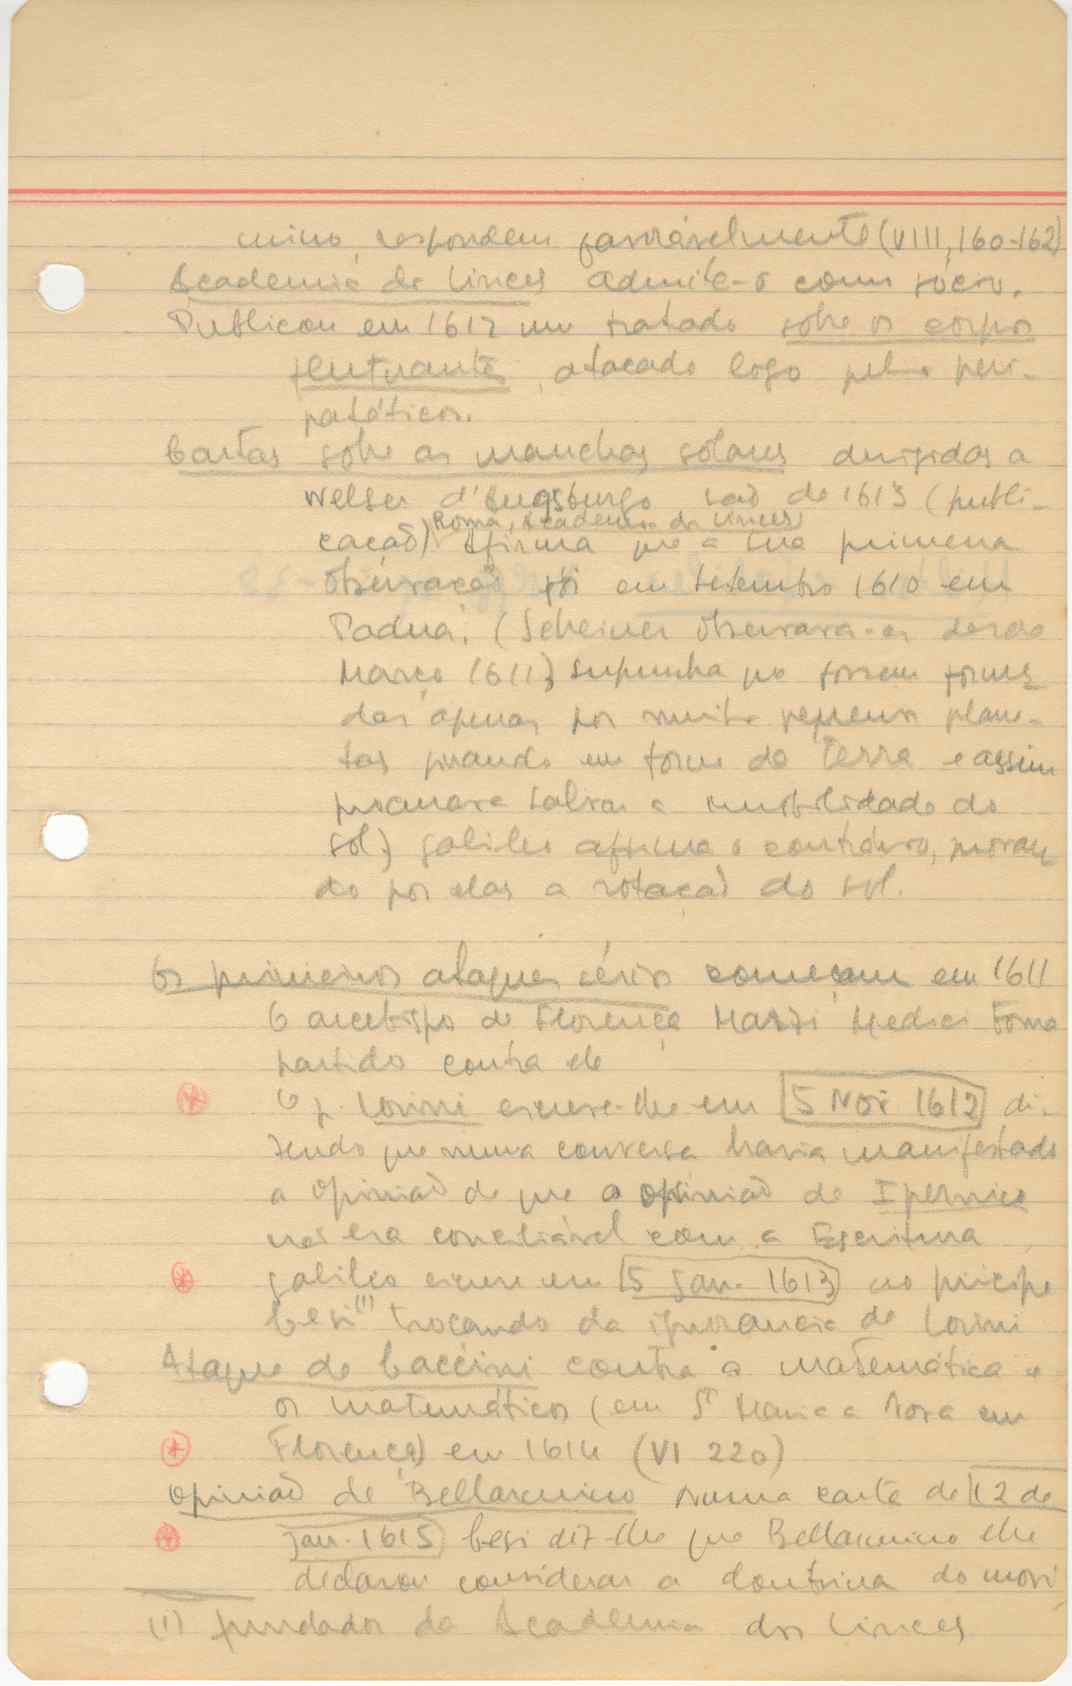 mino, respondem favoràvelmente (VIII, 160-162)
Academia de Linces admite-o como sócio.
Publicou em 1612 um tratado sobre os corpos
flutuantes, atacado logo pelos peri-
patéticos.
Cartas sobre as manchas solares dirigidas a
Welser d'Augsburgo são de 1613 (publi-
Roma, Academia de Linces
cação) Afirma que a sua primeira
observação foi em setembro 1610 em
Padua. (Scheiner observara-as desde
Março 1611) supunha que fossem forma
das apenas por muito pequenos plane-
tas girando em torno da Terra e assim
procurava salvar a imobilidade do
sol) Galileo afirma o contrário, provan
do por elas a rotação do sol.
Os primeiros ataques sérios começam em 1611
O arcebispo de Florença Marzi Medici toma
partido contra ele
O p. Lorini escreve-lhe em 5 Nov 1612 di-
zendo que numa conversa havia manifestado
a opinião de que a opinião de Ipernico
não era conciliável com a Escritura
Galileo escreve em 5 Jan. 1613 ao principe
Cesi (1) troçando da ignorancia de Lorini
Ataque de Caccini contra a matemática e
os matemáticos (em Sta Maria a Nova em
Florença) em 1614 (VI 220)
Opinião de Bellarmino Numa carta de 12 de
jan. 1615 Cesi diz-lhe que Bellarmino lhe
declarou considerar a doutrina do movi
(1) fundador da Academia dos Linces